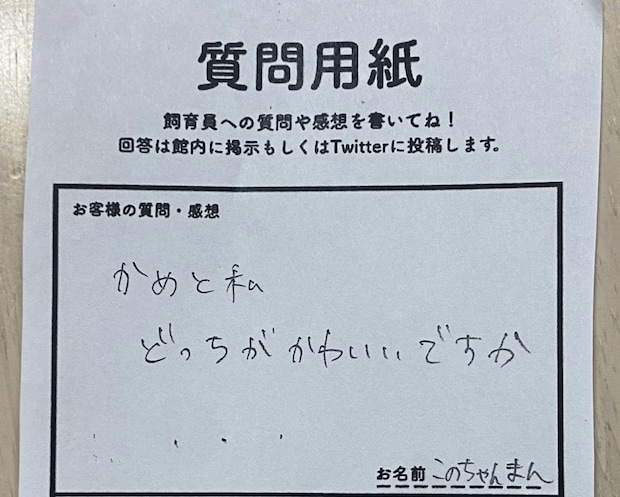 質問用紙
飼育員への質問や感想を書いてね！
回答は館内に掲示もしくはTwitterに投稿します。
お客様の質問・感想
かめと私
どっちがかわいいですか
お名前 このちゃんまん